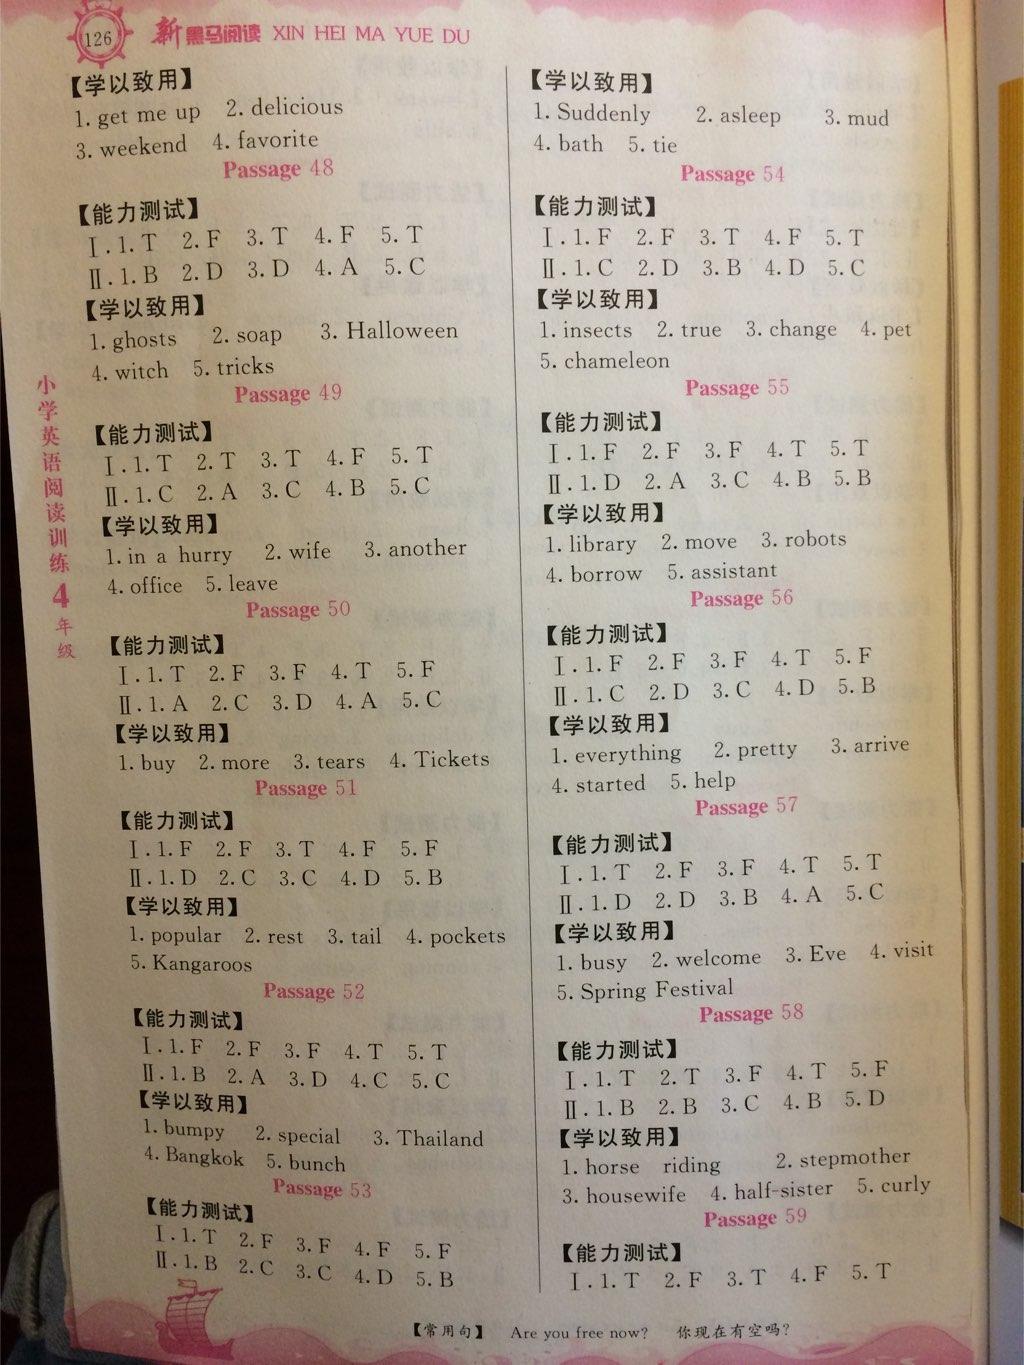 126 新黑马阅读 XIN HEI MA YUE DU
小学英语阅读训练4年级
【学以致用】
1. get me up 2. delicious
3. weekend 4. favorite
Passage 48
【能力测试】
Ⅰ.1. T 2. F 3. T 4. F 5. T
Ⅱ.1. B 2. D 3. D 4. A 5. C
【学以致用】
1. ghosts 2. soap 3. Halloween
4. witch 5. tricks
Passage 49
【能力测试】
Ⅰ.1. T 2. T 3. T 4. F 5. T
Ⅱ.1. C 2. A 3. C 4. B 5. C
【学以致用】
1. in a hurry 2. wife 3. another
4. office 5. leave
Passage 50
【能力测试】
Ⅰ.1. T 2. F 3. F 4. T 5. F
Ⅱ.1. A 2. C 3. D 4. A 5. C
【学以致用】
1. buy 2. more 3. tears 4. Tickets
Passage 51
【能力测试】
Ⅰ.1. F 2. F 3. T 4. F 5. F
Ⅱ.1. D 2. C 3. C 4. D 5. B
【学以致用】
1. popular 2. rest 3. tail 4. pockets
5. Kangaroos
Passage 52
【能力测试】
Ⅰ.1. F 2. F 3. F 4. T 5. T
Ⅱ.1. B 2. A 3. D 4. C 5. C
【学以致用】
1. bumpy 2. special 3. Thailand
4. Bangkok 5. bunch
Passage 53
【能力测试】
Ⅰ.1. T 2. F 3. F 4. F 5. F
Ⅱ.1. B 2. C 3. C 4. D 5. B
【学以致用】
1. Suddenly 2. asleep 3. mud
4. bath 5. tie
Passage 54
【能力测试】
Ⅰ.1. F 2. F 3. T 4. F 5. T
Ⅱ.1. C 2. D 3. B 4. D 5. C
【学以致用】
1. insects 2. true 3. change 4. pet
5. chameleon
Passage 55
【能力测试】
Ⅰ.1. F 2. F 3. F 4. T 5. T
Ⅱ.1. D 2. A 3. C 4. B 5. B
【学以致用】
1. library 2. move 3. robots
4. borrow 5. assistant
Passage 56
【能力测试】
Ⅰ.1. F 2. F 3. F 4. T 5. F
Ⅱ.1. C 2. D 3. C 4. D 5. B
【学以致用】
1. everything 2. pretty 3. arrive
4. started 5. help
Passage 57
【能力测试】
Ⅰ.1. T 2. F 3. F 4. T 5. T
Ⅱ.1. D 2. D 3. B 4. A 5. C
【学以致用】
1. busy 2. welcome 3. Eve 4. visit
5. Spring Festival
Passage 58
【能力测试】
Ⅰ.1. T 2. T 3. F 4. T 5. F
Ⅱ.1. B 2. B 3. C 4. B 5. D
【学以致用】
1. horse riding 2. stepmother
3. housewife 4. half-sister 5. curly
Passage 59
【能力测试】
Ⅰ.1. T 2. F 3. T 4. F 5. T
【常用句】 Are you free now? 你现在有空吗?